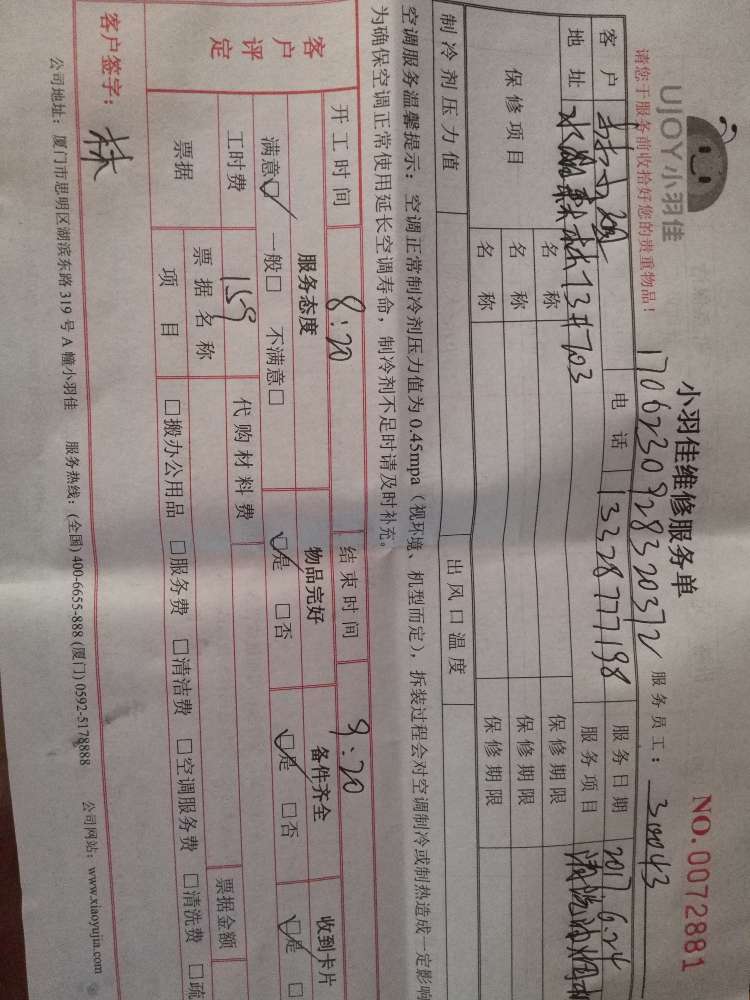 UJOY小羽佳
小羽佳维修服务单
NO.0072881
请您于服务前收拾好您的贵重物品！
17062309283203712
服务员工：30043
客户
电话 13328777198
服务日期 2017.6.24
地址 水 森林73#703
服务项目 清洗油烟机
保修项目
名称
保修期限
名称
保修期限
名称
保修期限
制冷剂压力值
出风口温度
空调服务温馨提示：空调正常制冷剂压力值为 0.45mpa（视环境、机型而定），拆装过程会对空调制冷或制热造成一定影响
为确保空调正常使用延长空调寿命，制冷剂不足时请及时补充。
开工时间 8:20
结束时间 9:20
客户评定
服务态度
物品完好
备件齐全
收到卡片
满意☑ 一般□ 不满意□
☑是 □否
☑是 □否
☑是 □
工时费 159
代购材料费
票据
票据名称
票据金额
项目
□搬办公用品 □服务费 □清洁费 □空调服务费 □清洗费 □疏
客户签字：林
公司地址：厦门市思明区湖滨东路 319 号 A 幢小羽佳 服务热线：(全国) 400-6655-888 (厦门) 0592-5178888 公司网站：www.xiaoyujia.com